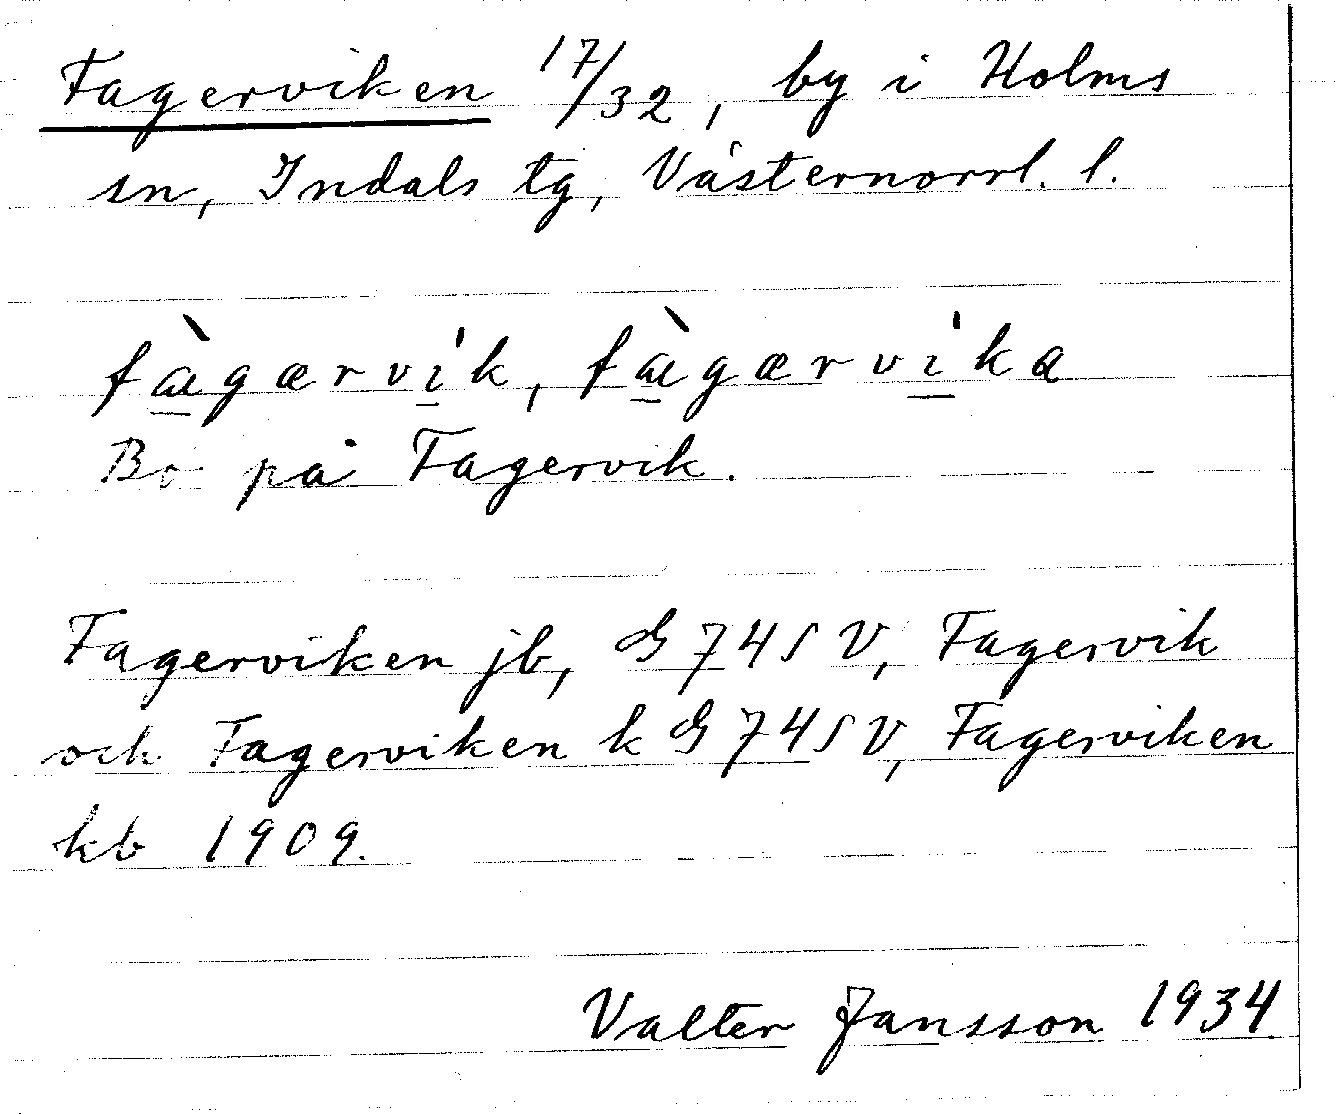 Fagerviken 17/32, by i Holms
sn, Indals tg, Västernorrl. l.
fàgærvik, fàgærvika
Bo på Fagervik.
Fagerviken jb, G 74 S V, Fagervik
och Fagerviken k G 74 S V, Fagerviken
kb 1909.
Valter Jansson 1934